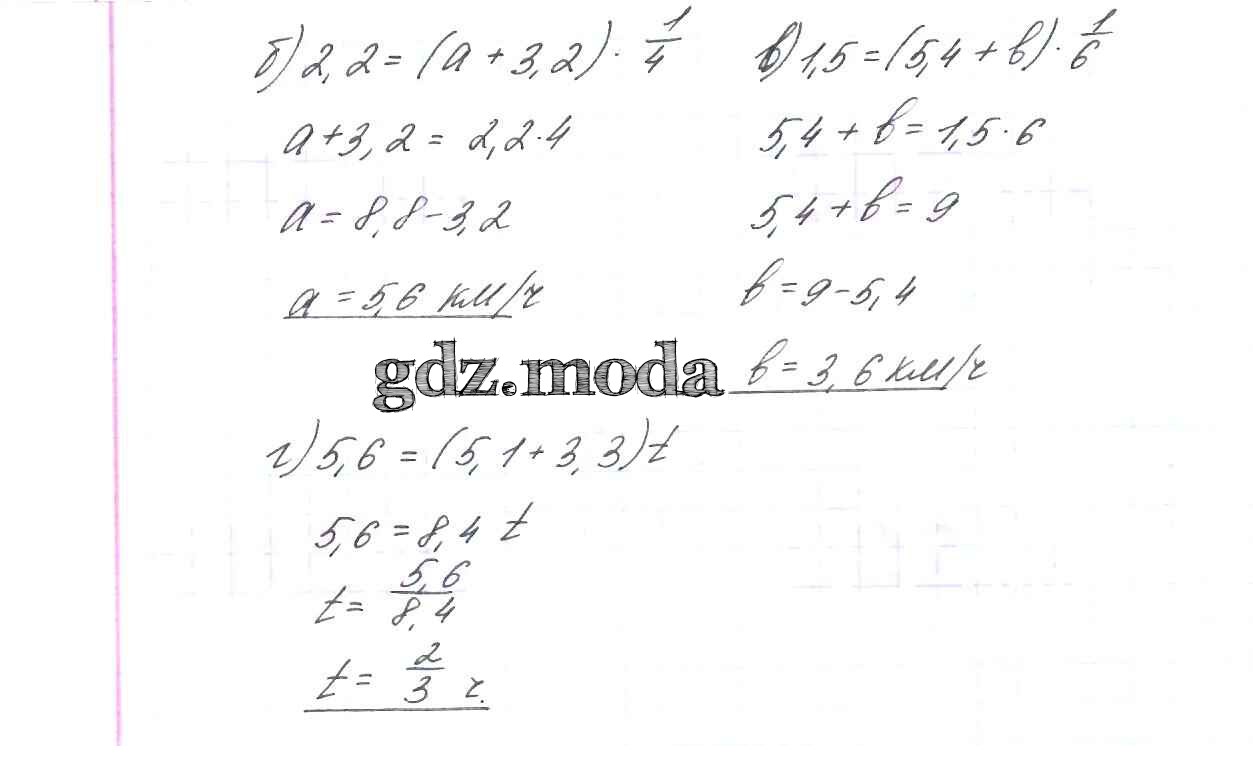 б) 2,2 = (a + 3,2) · 1/4
a + 3,2 = 2,2 · 4
a = 8,8 - 3,2
a = 5,6 км/ч
в) 1,5 = (5,4 + в) · 1/6
5,4 + в = 1,5 · 6
5,4 + в = 9
в = 9 - 5,4
в = 3,6 км/ч
gdz.moda
г) 5,6 = (5,1 + 3,3) t
5,6 = 8,4 t
t = 5,6/8,4
t = 2/3 ч.